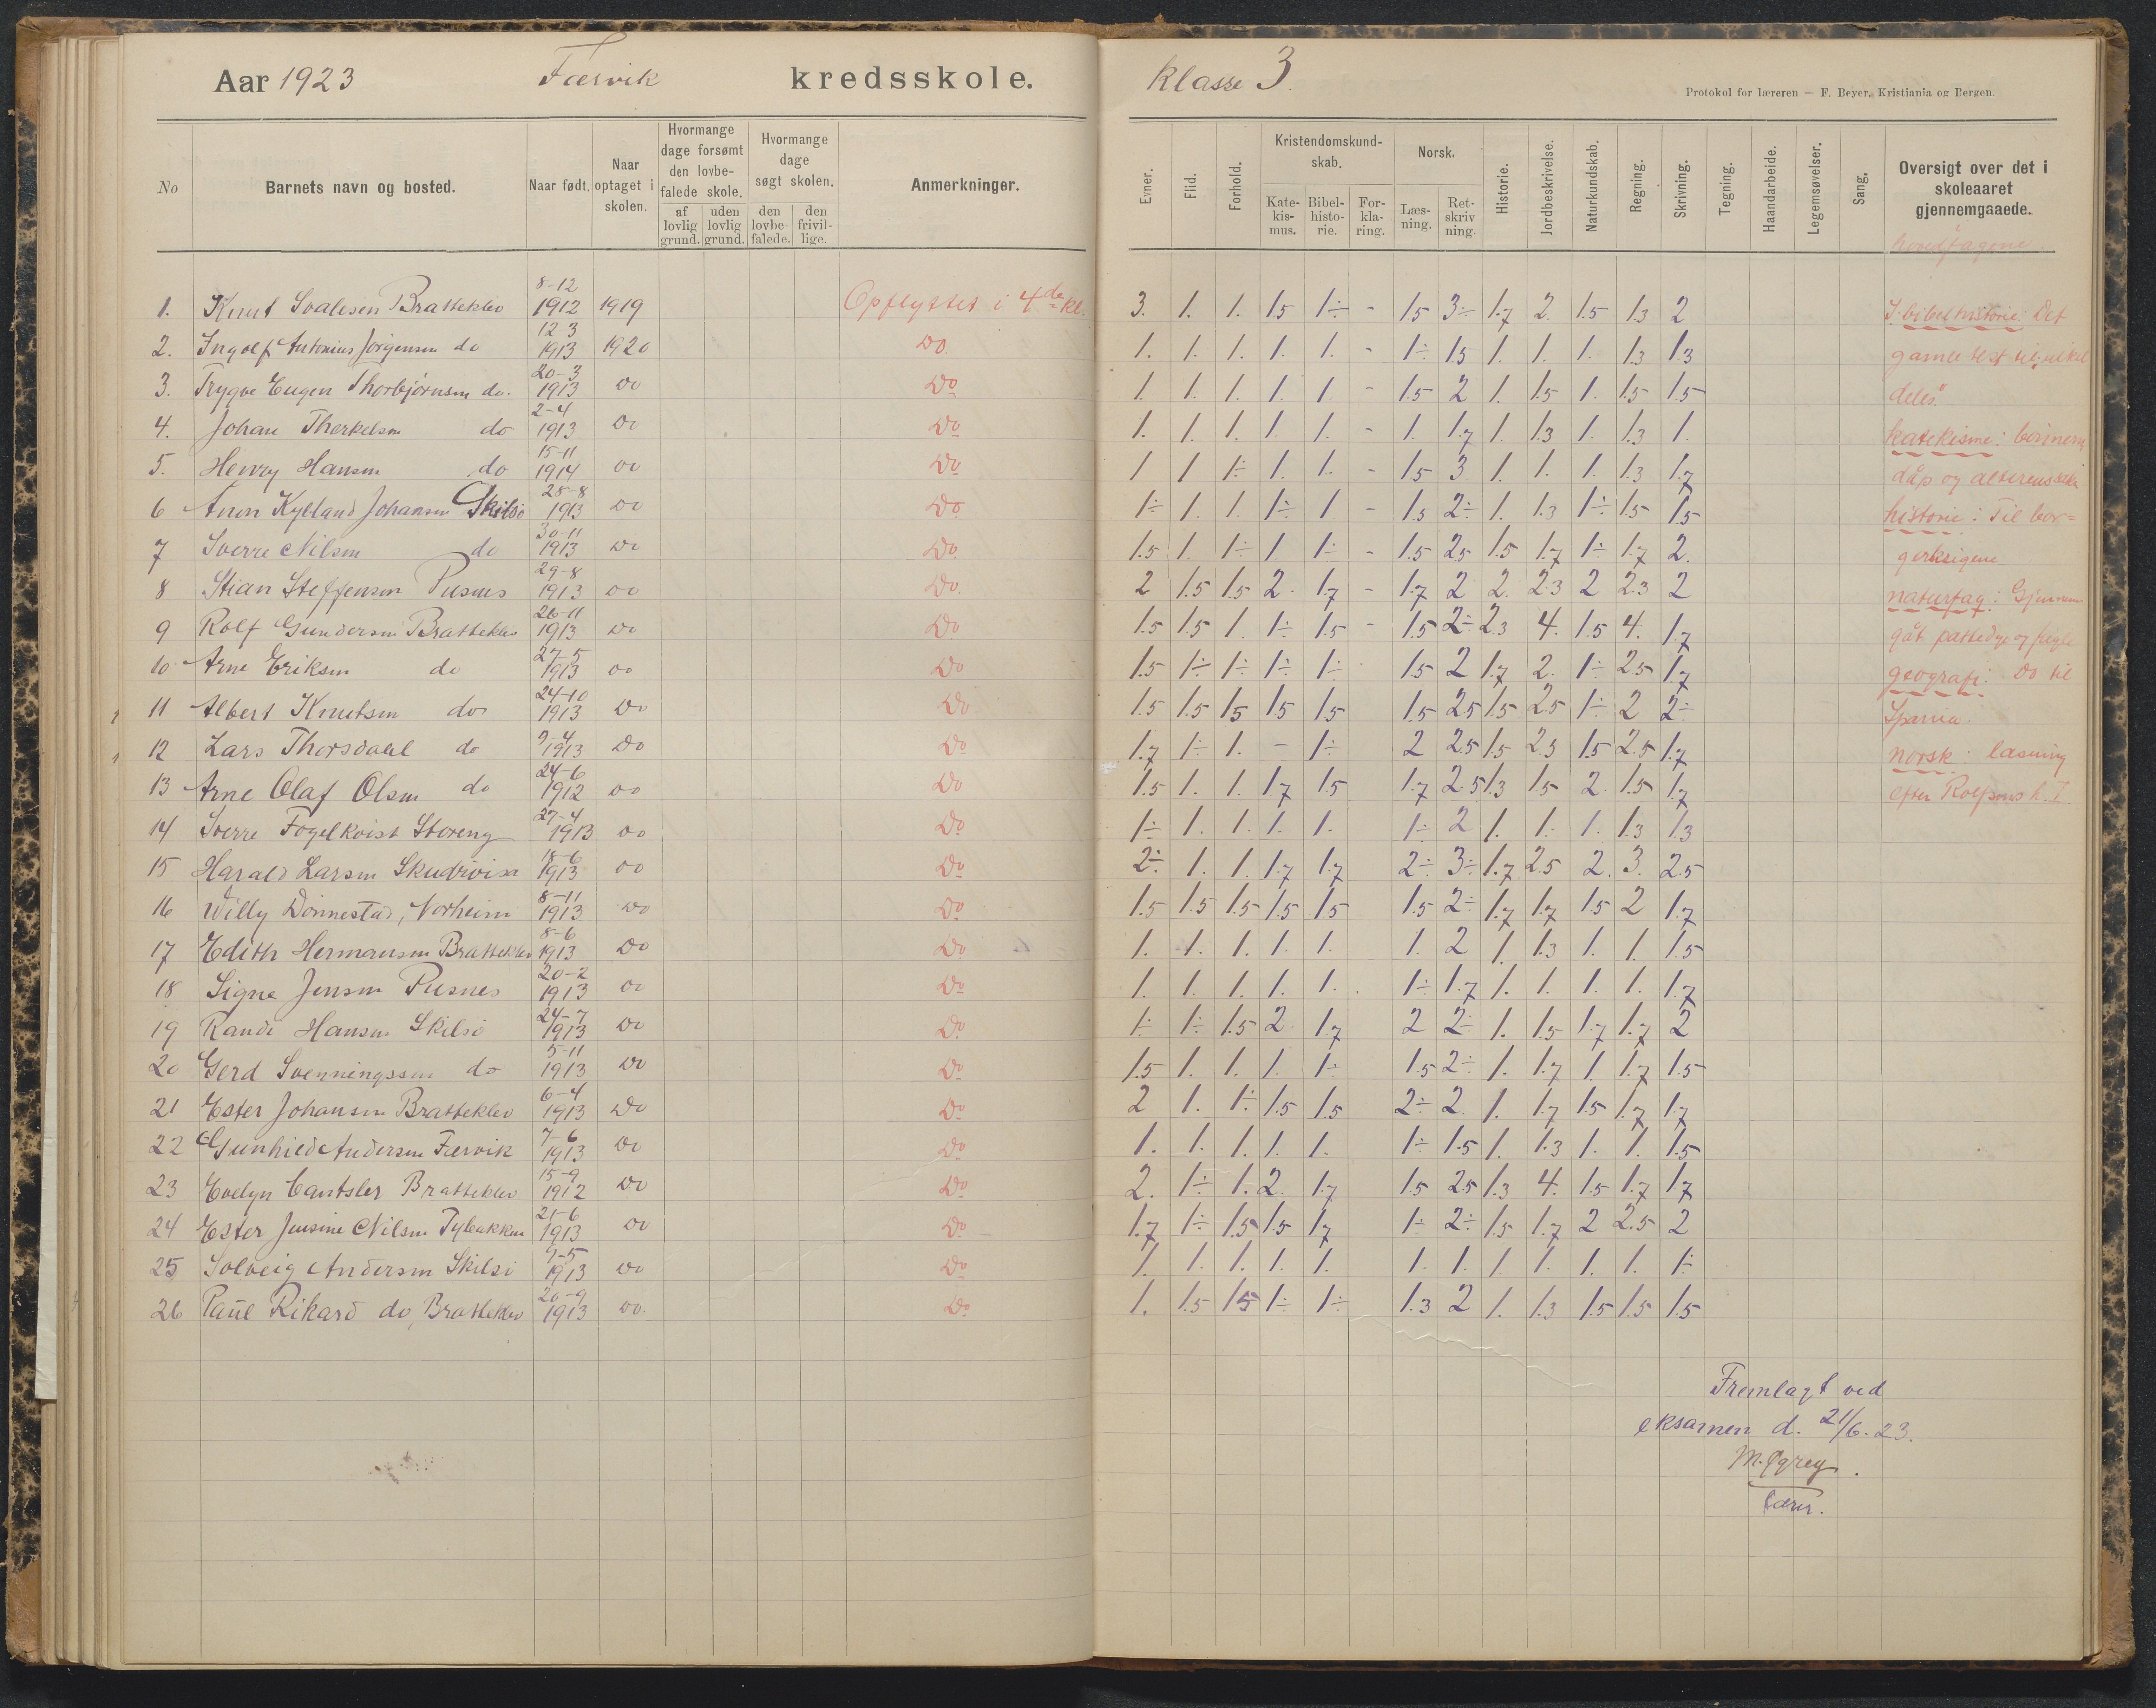 Aar 1923 Færvik kredsskole. Klasse 3.
Protokol for læreren — F. Beyer. Kristiania og Bergen.
No Barnets navn og bosted. Naar født. Naar optaget i skolen. Hvormange dage forsømt den lovbefalede skole. af lovlig grund. uden lovlig grund. Hvormange dage søgt skolen. den lovbefalede. den frivillige. Anmerkninger.
Evner. Flid. Forhold. Kristendomskundskab. Katekismus. Bibelhistorie. Forklaring. Norsk. Læsning. Retskrivning. Historie. Jordbeskrivelse. Naturkundskab. Regning. Skrivning. Tegning. Haandarbeide. Legemsøvelser. Sang. Oversigt over det i skoleaaret gjennemgaaede.
hovedfagene
1. Knut Svalesen Bratteklev 8-12 1912 1919 Opflyttet i 4de kl. 3. 1. 1. 1.5 1÷ - 1.5 3÷ 1.7 2. 1.5 1.3 2 I bibelhistorie: Det
2. Ingolf Antonius Jørgensen do 12 3 1913 1920 Do. 1. 1. 1. 1. 1. - 1÷ 1.5 1. 1. 1. 1.3 1.3 gamle test til
3. Trygve Eugen Thorbjørnsen do. 20-3 1913 Do Do 1. 1. 1. 1. 1. - 1.5 2 1. 1.5 1. 1.5 1.5
4. Johan Therkelsen do 2-4 1913 Do Do 1. 1. 1. 1. 1. - 1. 1.7 1. 1.3 1. 1.3 1. katekisme:
5. Henry Hansen do 15-11 1914 Do Do 1 1 1÷ 1. 1. - 1.5 3 1. 1. 1. 1.3 1.7 dåp og alterens
6 Anon Kylland Johansen Skilsø 28-8 1913 Do Do 1÷ 1. 1. 1÷ 1 - 1.5 2÷ 1. 1.3 1÷ 1.5 1.5 historie: Til bor=
7 Sverre Nilsen do 30-11 1913 Do Do 1.5 1. 1÷ 1 1÷ - 1.5 2.5 1.5 1.7 1÷ 1.7 2. gerkrigene
8 Stian Steffensen Pusnes 29-8 1913 Do Do. 2 1.5 1.5 2. 1.7 - 1.7 2 2. 2.3 2 2.3 2 naturfag: Gjennem
9 Rolf Gundersen Bratteklev 26-11 1913 Do Do 1.5 1.5 1. 1÷ 1.5 - 1.5 2÷ 2.3 4. 1.5 4. 1.7 gåt pattedyr og fugle
10 Arne Eriksen do 27-5 1913 Do Do 1.5 1÷ 1÷ 1÷ 1÷ 1.5 2 1.7 2. 1÷ 2.5 1.7 geografi: Do til
11 Albert Knutsen do 24-10 1913 Do Do 1.5 1.5 1.5 1.5 1.5 1.5 2.5 1.5 2.5 1÷ 2 2÷ Spania.
12 Lars Thorsdahl do 9-4 1913 Do Do 1.7 1÷ 1. - 1÷ 2 2.5 1.5 2.3 1.5 2.5 1.7 norsk: læsning
13 Arne Olaf Olsen do 24-6 1912 Do Do 1.5 1. 1. 1.7 1.5 1.7 2.5 1.3 1.5 2. 1.5 1.7 efter Rolfsens h. I
14 Sverre Fogelkvist Storeng 27-4 1913 Do Do 1÷ 1. 1. 1. 1. 1÷ 2 1. 1. 1. 1.3 1.3
15 Harald Larsen Skudivisa 18-6 1913 Do Do 2÷ 1. 1. 1.7 1.7 2÷ 3÷ 1.7 2.5 2. 3. 2.5
16 Willy Dønnestad, Norheim 8-11 1913 Do Do 1.5 1.5 1.5 1.5 1.5 1.5 2÷ 1.7 1.7 1.5 2 1.7
17 Edith Hermansen Bratteklev 8-6 1913 Do Do 1. 1. 1. 1. 1. 1. 2 1. 1.3 1. 1. 1.5
18 Signe Jensen Pusnes 20-2 1913 Do Do 1. 1. 1. 1. 1. 1÷ 1.7 1. 1. 1. 1. 1.7
19 Randi Hansen Skilsø 24-7 1913 Do Do 1÷ 1÷ 1.5 2. 1.7 2 2÷ 1. 1.5 1.7 1.7 2
20 Gerd Svenningssen do 5-11 1913 Do Do 1.5 1. 1. 1. 1÷ 1.5 2÷ 1. 1.7 1 1.7 1.5
21 Ester Johansen Bratteklev 6-4 1913 Do Do 2 1. 1÷ 1.5 1.5 2÷ 2. 1. 1.7 1.5 1.7 1.7
22 Gunhild Andersen Færvik 7-6 1913 Do Do 1. 1. 1. 1. 1. 1÷ 1.5 1. 1.3 1. 1. 1.5
23 Evelyn Cantsler Bratteklev 15-9 1912 Do Do 2. 1÷ 1. 2. 1.7 1.5 2.5 1.3 4. 1.5 1.7 1.7
24 Ester Jensine Nilsen Tybakken 21-6 1913 Do Do 1.7 1÷ 1.5 1.5 1.7 1÷ 2÷ 1.5 1.7 2 2.5 2
25 Solveig Andersen Skilsø 9-5 1913 Do Do 1. 1. 1. 1. 1. 1. 1. 1. 1. 1. 1. 1÷
26 Paul Rikard do, Bratteklev 20-9 1913 Do. Do 1. 1.5 1.5 1÷ 1÷ 1.3 2 1. 1.3 1.5 1.5 1.5
Fremlagt ved
eksamen d. 21/6. 23.
lærer.